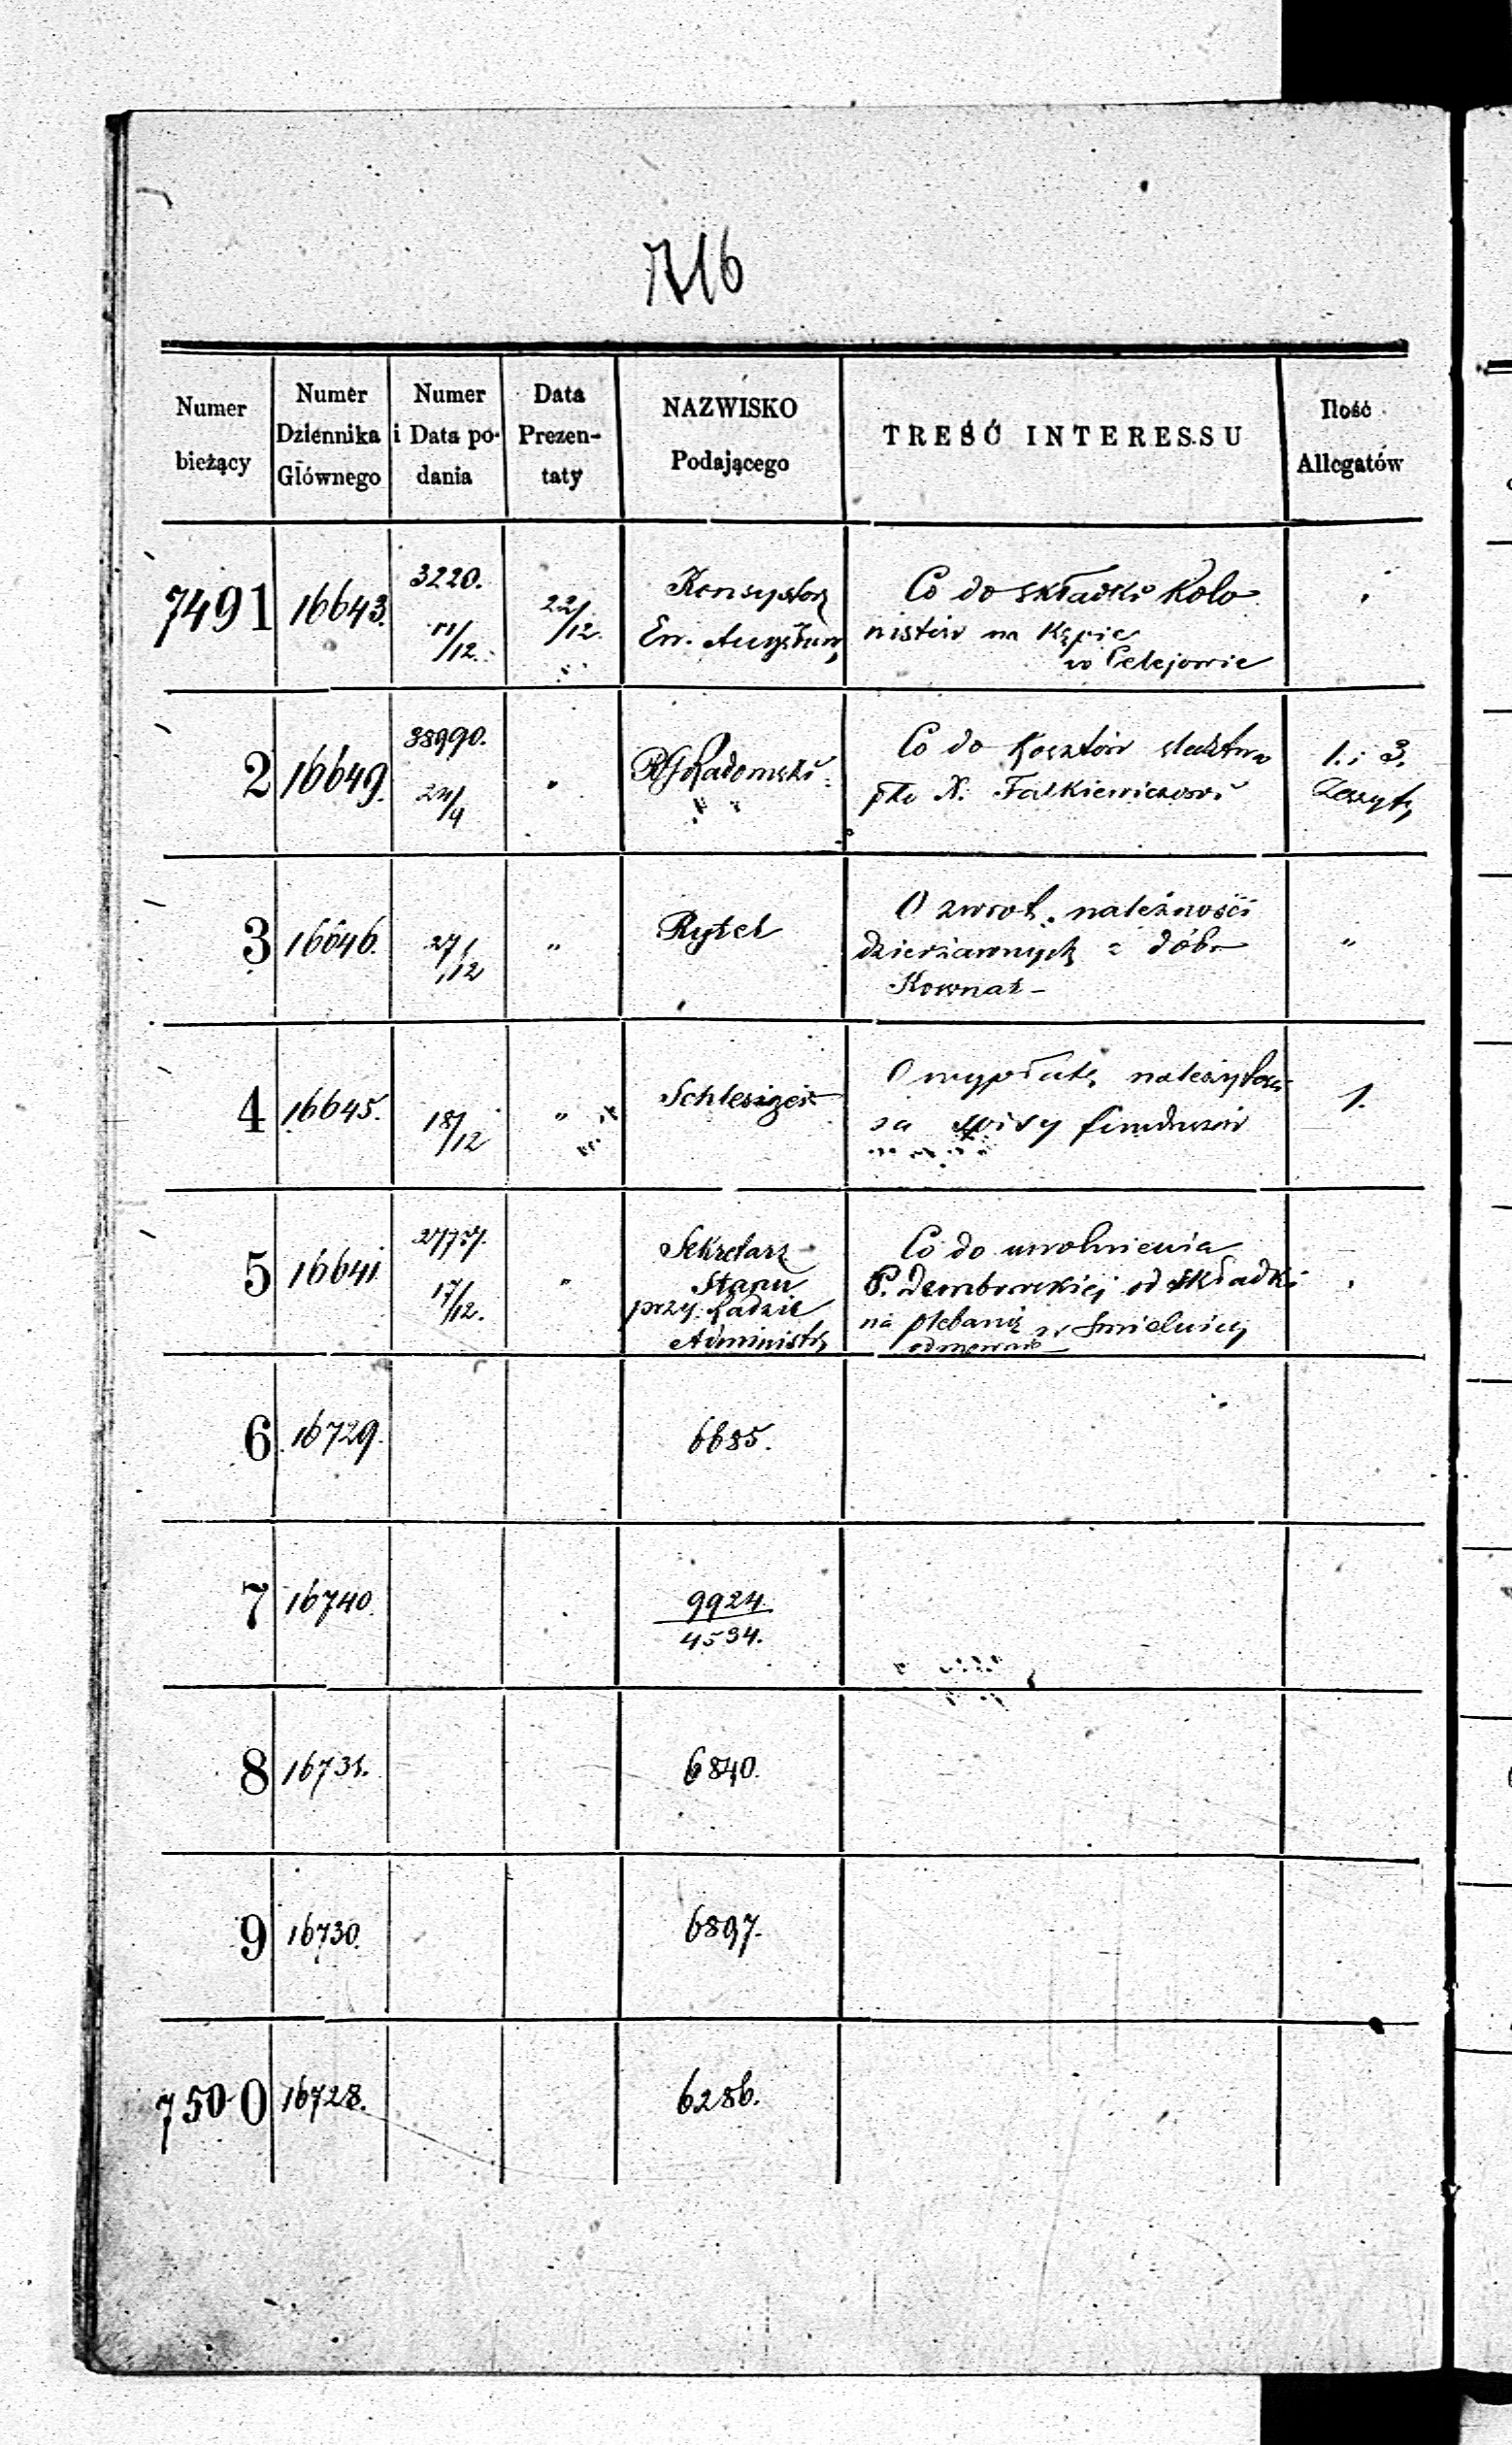 716
Numer bieżący
Numer Dziennika Głównego
Numer i Data podania
Data Prezentaty
NAZWISKO Podającego
TREŚĆ INTERESSU
Ilość Allegatów
7491 16643. 3220. 11/12. 22/12. Konsystorz Co do składki Kolo
Ew. Augsburg nistów na Kępie
w Celejowie
2 16649. 38990. 24/9 " RG Radomski Co do Kosztów śledztwa 1. i 3.
pko X. Falkiewiczowi Zeszyty
3 16646. 27/12 " Rytel O zwrot należności "
dzierżawnych z dóbr
Kownat
4 16645. 18/12 " Schlesiger O wypłatę należytości 1.
za spisy funduszów
5 16641 17/12. " Sekretarz Co do uwolnienia
Stanu P. Dembowskiej od składki
przy Radzie na plebanią w Smielnicy
Administr odmownie
6 16729. 6685.
7 16740. 9924.
4534.
8 16731. 6840.
9 16730. 6897.
7500 16728. 6286.